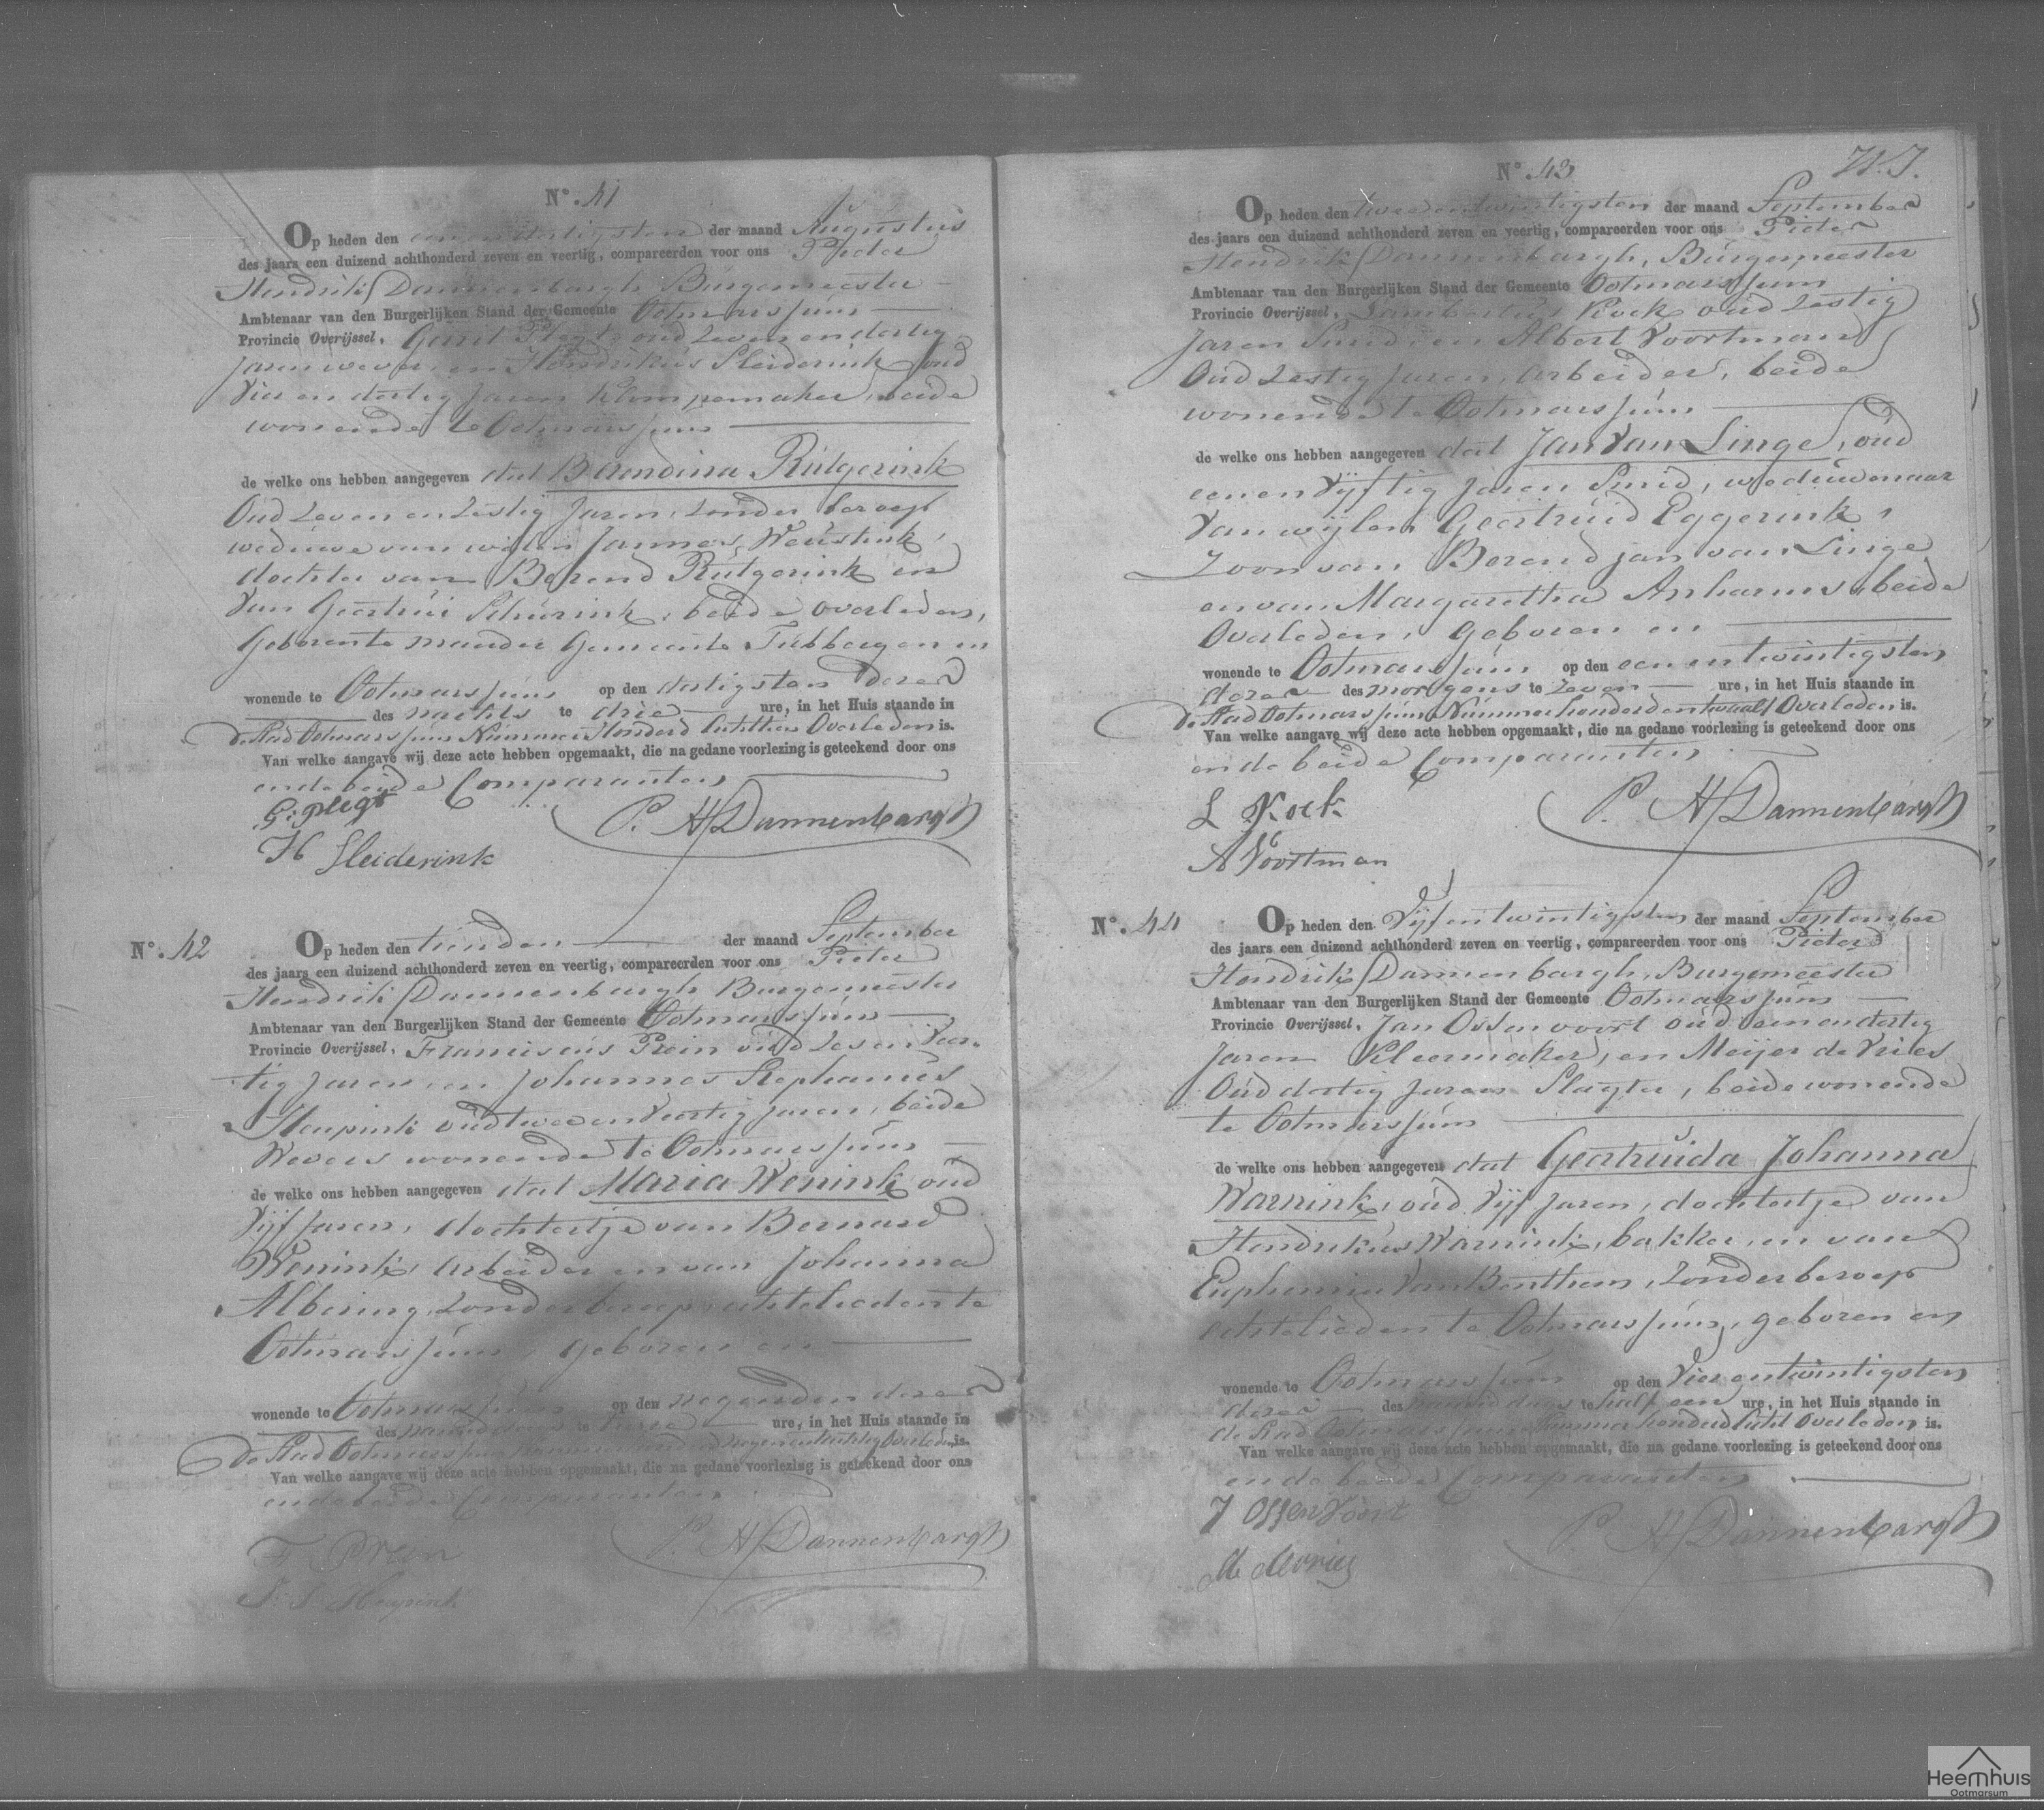 N° 41
Op heden den een en dertigsten der maand Augustus
des jaars een duizend achthonderd zeven en veertig, compareerden voor ons Pieter
Hendrik Dannenbargh Burgemeester
Ambtenaar van den Burgerlijken Stand der Gemeente Ootmarssum
Provincie Overijssel, Gerrit Plegt oud zeven en dertig
jaren wever, en Hendrikus Sleiderink oud
vier en dertig jaren klompemaker, beide
wonende te Ootmarssum
de welke ons hebben aangegeven dat Berendina Rutgerink
oud zeven en zestig jaren, zonder beroep
weduwe van wijlen Jannes Weustink,
dochter van Berend Rutgerink en
van Geertrui Schurink, beide overleden,
geboren te Mander Gemeente Tubbergen en
wonende te Ootmarssum op den dertigsten dezer
des nachts te drie ure, in het Huis staande in
de Stad Ootmarssum Nummer Honderd achttien Overleden is.
Van welke aangave wij deze acte hebben opgemaakt, die na gedane voorlezing is geteekend door ons
en de beide Comparanten
G. Plegt
P. H. Dannenbargh
H Sleiderink
N° 42
Op heden den tienden der maand September
des jaars een duizend achthonderd zeven en veertig, compareerden voor ons Pieter
Hendrik Dannenbargh Burgemeester
Ambtenaar van den Burgerlijken Stand der Gemeente Ootmarssum
Provincie Overijssel, Franciscus Prein oud zes en veer-
tig jaren, en Johannes Stephanus
Heupink oud twee en veertig jaren, beide
wevers wonende te Ootmarssum
de welke ons hebben aangegeven dat Maria Wenink oud
vijf jaren, dochtertje van Bernard
Wenink, arbeider en van Johanna
Albering, zonder beroep, echtelieden te
Ootmarssum, geboren en
wonende te Ootmarssum op den negenden dezer
des namiddags te ure, in het Huis staande in
de Stad Ootmarssum negen en tachtig Overleden is.
Van welke aangave wij deze acte hebben opgemaakt, die na gedane voorlezing is geteekend door ons
en de beide Comparanten
F. Prein
P. H. Dannenbargh
J. S. Heupink
N° 43
Op heden den twee en twintigsten der maand September
des jaars een duizend achthonderd zeven en veertig, compareerden voor ons Pieter
Hendrik Dannenbargh, Burgemeester
Ambtenaar van den Burgerlijken Stand der Gemeente Ootmarssum
Provincie Overijssel, Lambertus Kock oud zestig
jaren Smid en Albert Voortman
oud zestig jaren, arbeider, beide
wonende te Ootmarssum
de welke ons hebben aangegeven dat Jan Van Linge, oud
een en vijftig jaren Smid, weduwenaar
van wijlen Geertruid Eggerink,
zoon van Berend jan van Linge
en van Margaretha Anharms, beide
overleden, geboren en
wonende te Ootmarssum op den een en twintigsten
dezer des morgens te zeven ure, in het Huis staande in
de Stad Ootmarssum Nummer honderd en twaalf Overleden is.
Van welke aangave wij deze acte hebben opgemaakt, die na gedane voorlezing is geteekend door ons
en de beide Comparanten
L Kock
P. H. Dannenbargh
A Voortman
N° 44
Op heden den Vijf en twintigsten der maand September
des jaars een duizend achthonderd zeven en veertig, compareerden voor ons Pieter
Hendrik Dannenbargh, Burgemeester
Ambtenaar van den Burgerlijken Stand der Gemeente Ootmarssum
Provincie Overijssel, Jan Ossenvoort oud een en dertig
jaren Kleermaker, en Meijer de Vries
oud dertig jaren Slagter, beide wonende
te Ootmarssum
de welke ons hebben aangegeven dat Geertruida Johanna
Warnink, oud vijf jaren, dochtertje van
Hendrikus Warnink, bakker, en van
Euphemia Van Benthem, zonder beroep
echtelieden te Ootmarssum, geboren en
wonende te Ootmarssum op den vier en twintigsten
dezer des namiddags te half een ure, in het Huis staande in
de Stad Ootmarssum Nummer honderd acht Overleden is.
Van welke aangave wij deze acte hebben opgemaakt, die na gedane voorlezing is geteekend door ons
en de beide Comparanten
J Ossenvoort
P. H. Dannenbargh
M de Vries
Heemhuis
Ootmarsum